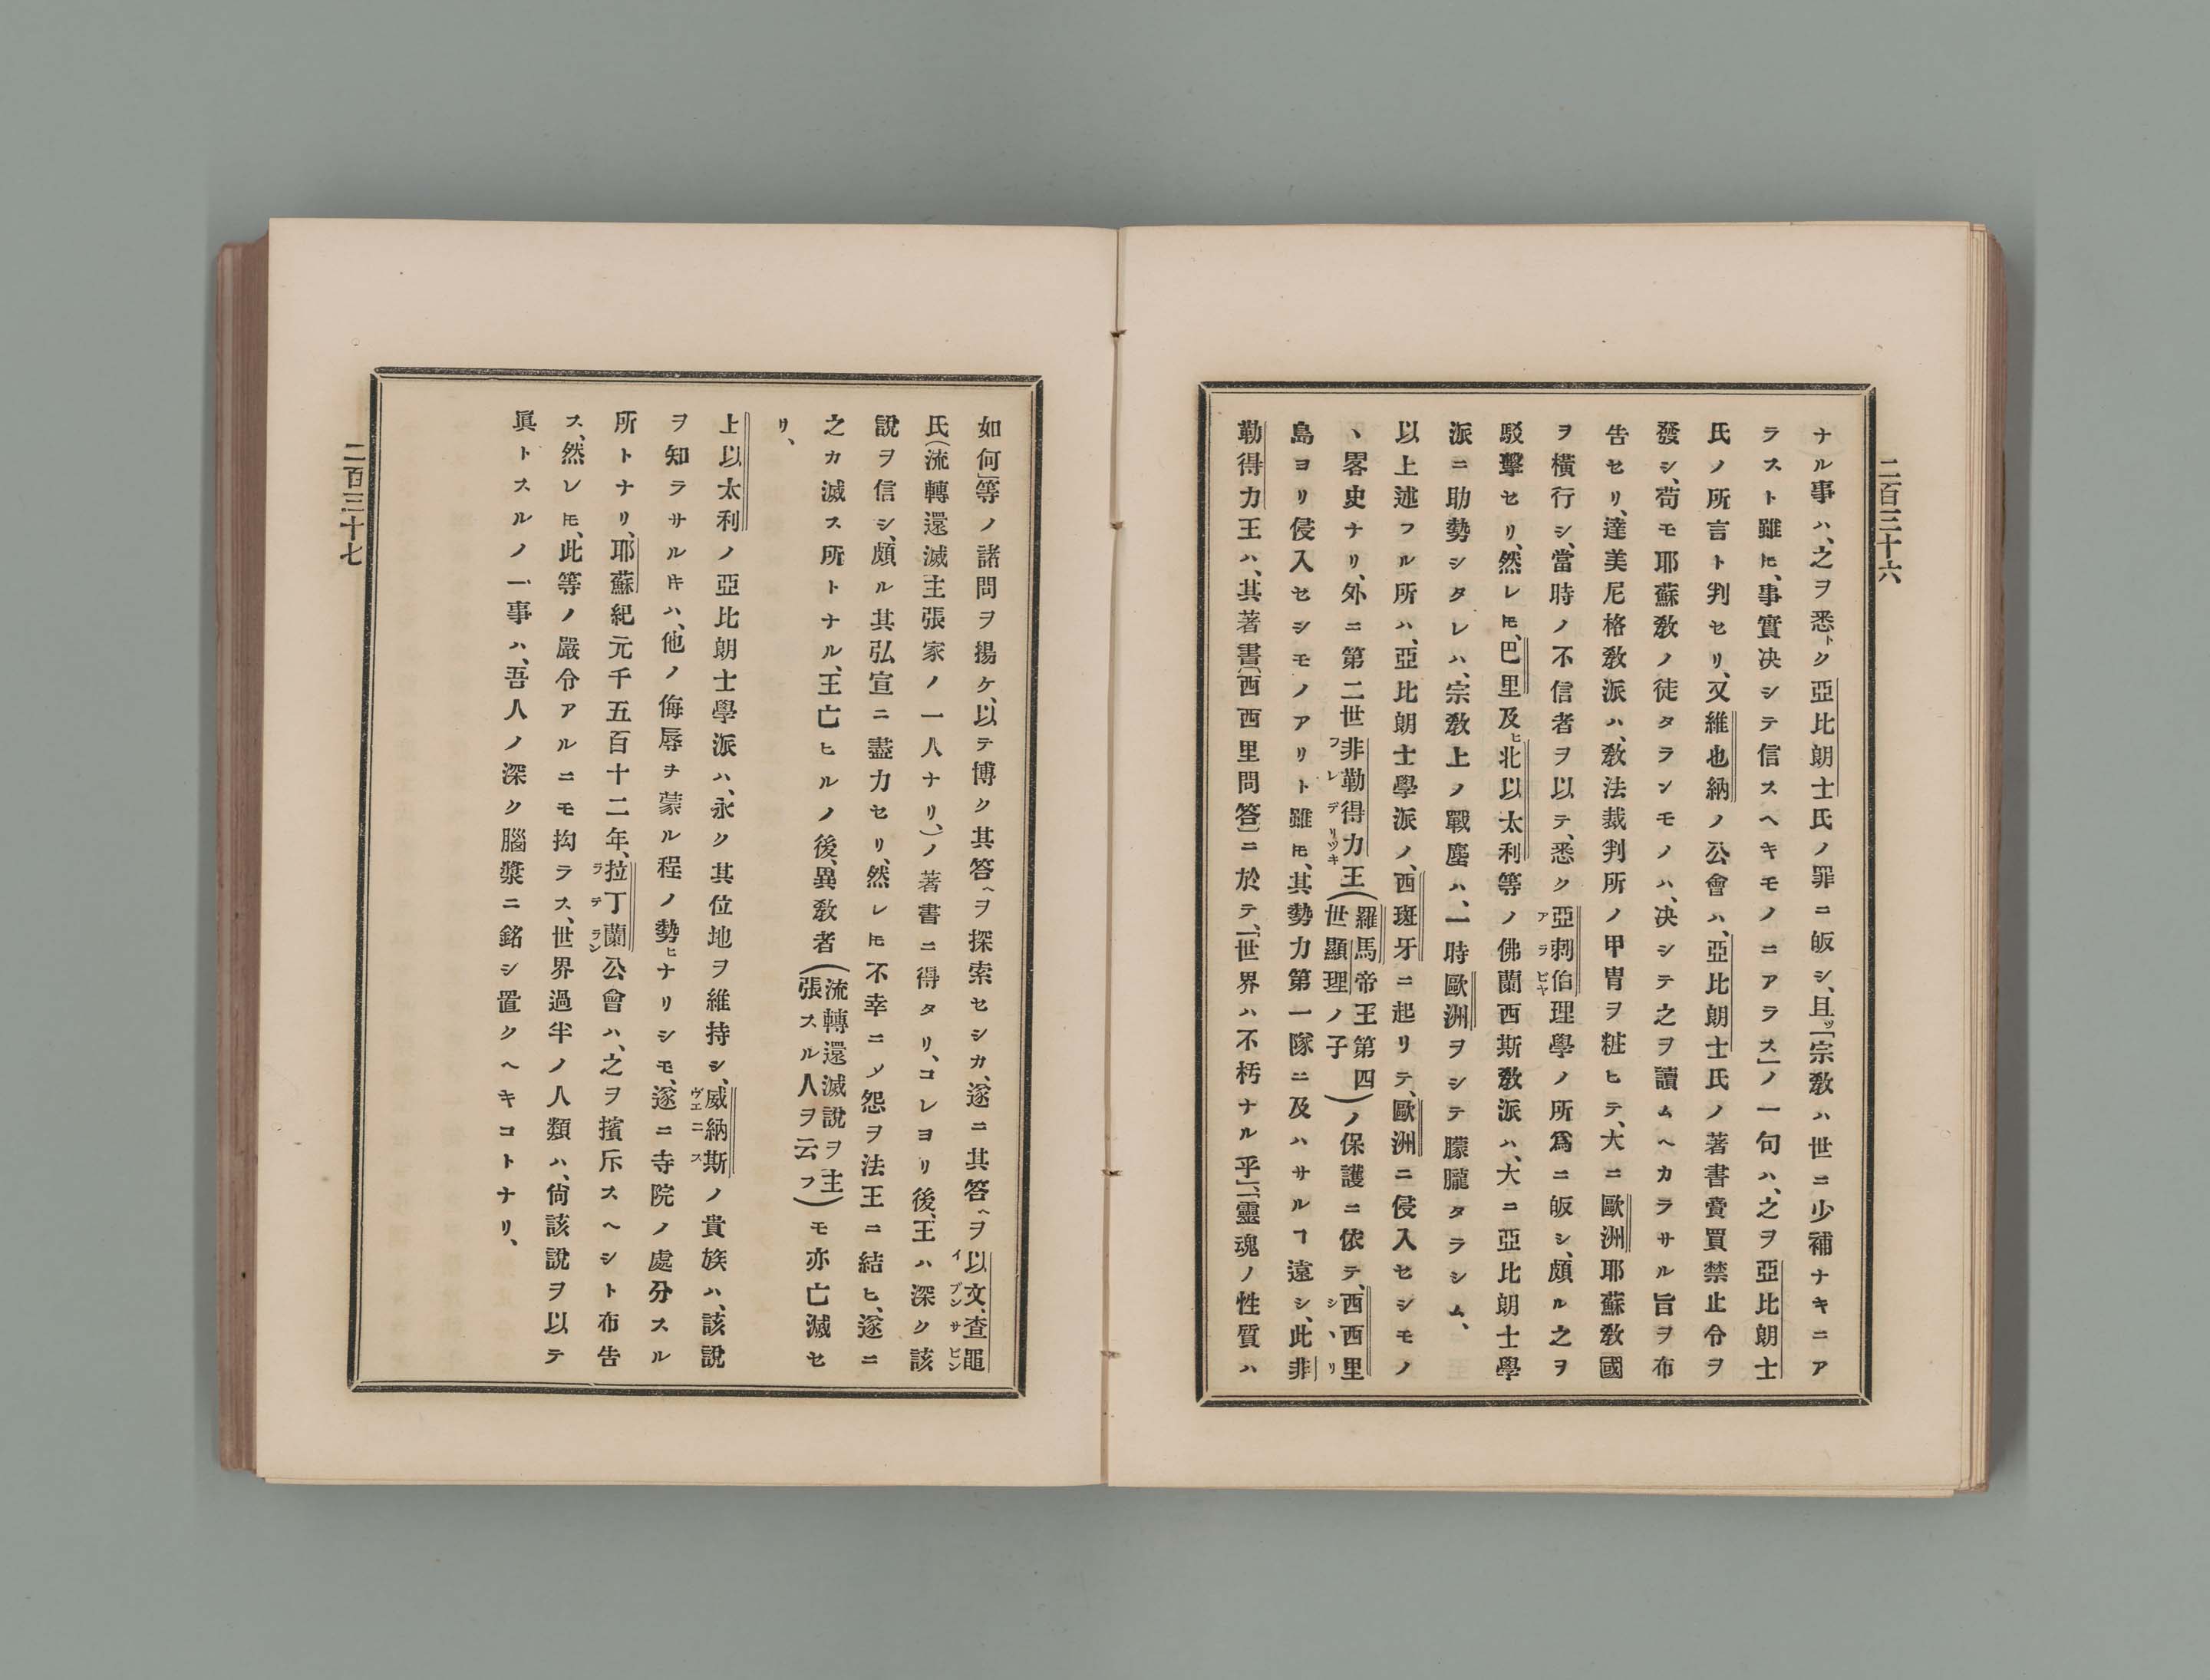 二百三十六
ナル事ハ、之ヲ悉トク亞比朗士氏ノ罪ニ皈シ、且ツ「宗敎ハ世ニ少補ナキニア
ラスト雖ヒ、事實决シテ信スヘキモノニアラス」ノ一句ハ、之ヲ亞比朗士
氏ノ所言ト判セリ、又維也納ノ公會ハ、亞比朗士氏ノ著書賣買禁止令ヲ
發シ、苟モ耶蘇敎ノ徒タランモノハ、决シテ之ヲ讀ムヘカラサル旨ヲ布
告セリ、達美尼格敎派ハ、敎法裁判所ノ甲冑ヲ粧ヒテ、大ニ歐洲耶蘇敎國
ヲ橫行シ、當時ノ不信者ヲ以テ、悉ク亞剌伯理學ノ所爲ニ皈シ、頗ル之ヲ
アラビヤ
駁擊セリ、然レ𪜈、巴里及ヒ北以太利等ノ佛蘭西斯敎派ハ、大ニ亞比朗士學
派ニ助勢シタレハ、宗敎上ノ戰塵ハ、一時歐洲ヲシテ朦朧タラシム、
以上述フル所ハ、亞比朗士學派ノ、西斑牙ニ起リテ、歐洲ニ侵入セシモノ
ヽ畧史ナリ、外ニ第二世非勒得力王(羅馬帝王第四世顯理ノ子)ノ保護ニ依テ、西西里
フレデリツキ
シヽリ
島ヨリ侵入セシモノアリト雖𪜈、其勢力第一隊ニ及ハサルヿ遠シ、此非
勒得力王ハ、其著書「西西里問答」ニ於テ、「世界ハ不朽ナル乎」「靈魂ノ性質ハ
如何」等ノ諸問ヲ揚ケ、以テ博ク其答ヘヲ探索セシカ、遂ニ其答ヘヲ以文、查黽
イブンサビン
氏(流轉還滅主張家ノ一人ナリ、)ノ著書ニ得タリ、コレヨリ後、王ハ深ク該
說ヲ信シ、頗ル其弘宣ニ盡力セリ、然レ𪜈不幸ニソ怨ヲ法王ニ結ヒ、遂ニ
之カ滅ス所トナル、王亡ヒルノ後、異敎者(流轉還滅說ヲ主張スル人ヲ云フ)モ亦亡滅セ
リ、
上以太利ノ亞比朗士學派ハ、永ク其位地ヲ維持シ、威納斯ノ貴族ハ、該說
ヴエニス
ヲ知ラサルキハ、他ノ侮辱ヲ蒙ル程ノ勢ヒナリシモ、遂ニ寺院ノ處分スル
所トナリ、耶蘇紀元千五百十二年、拉丁蘭公會ハ、之ヲ擯斥スヘシト布告
ラテラン
ス、然レ𪜈、此等ノ嚴令アルニモ拘ラス、世界過半ノ人類ハ、尙該說ヲ以テ
眞トスルノ一事ハ、吾人ノ深ク腦漿ニ銘シ置クヘキコトナリ、
二百三十七